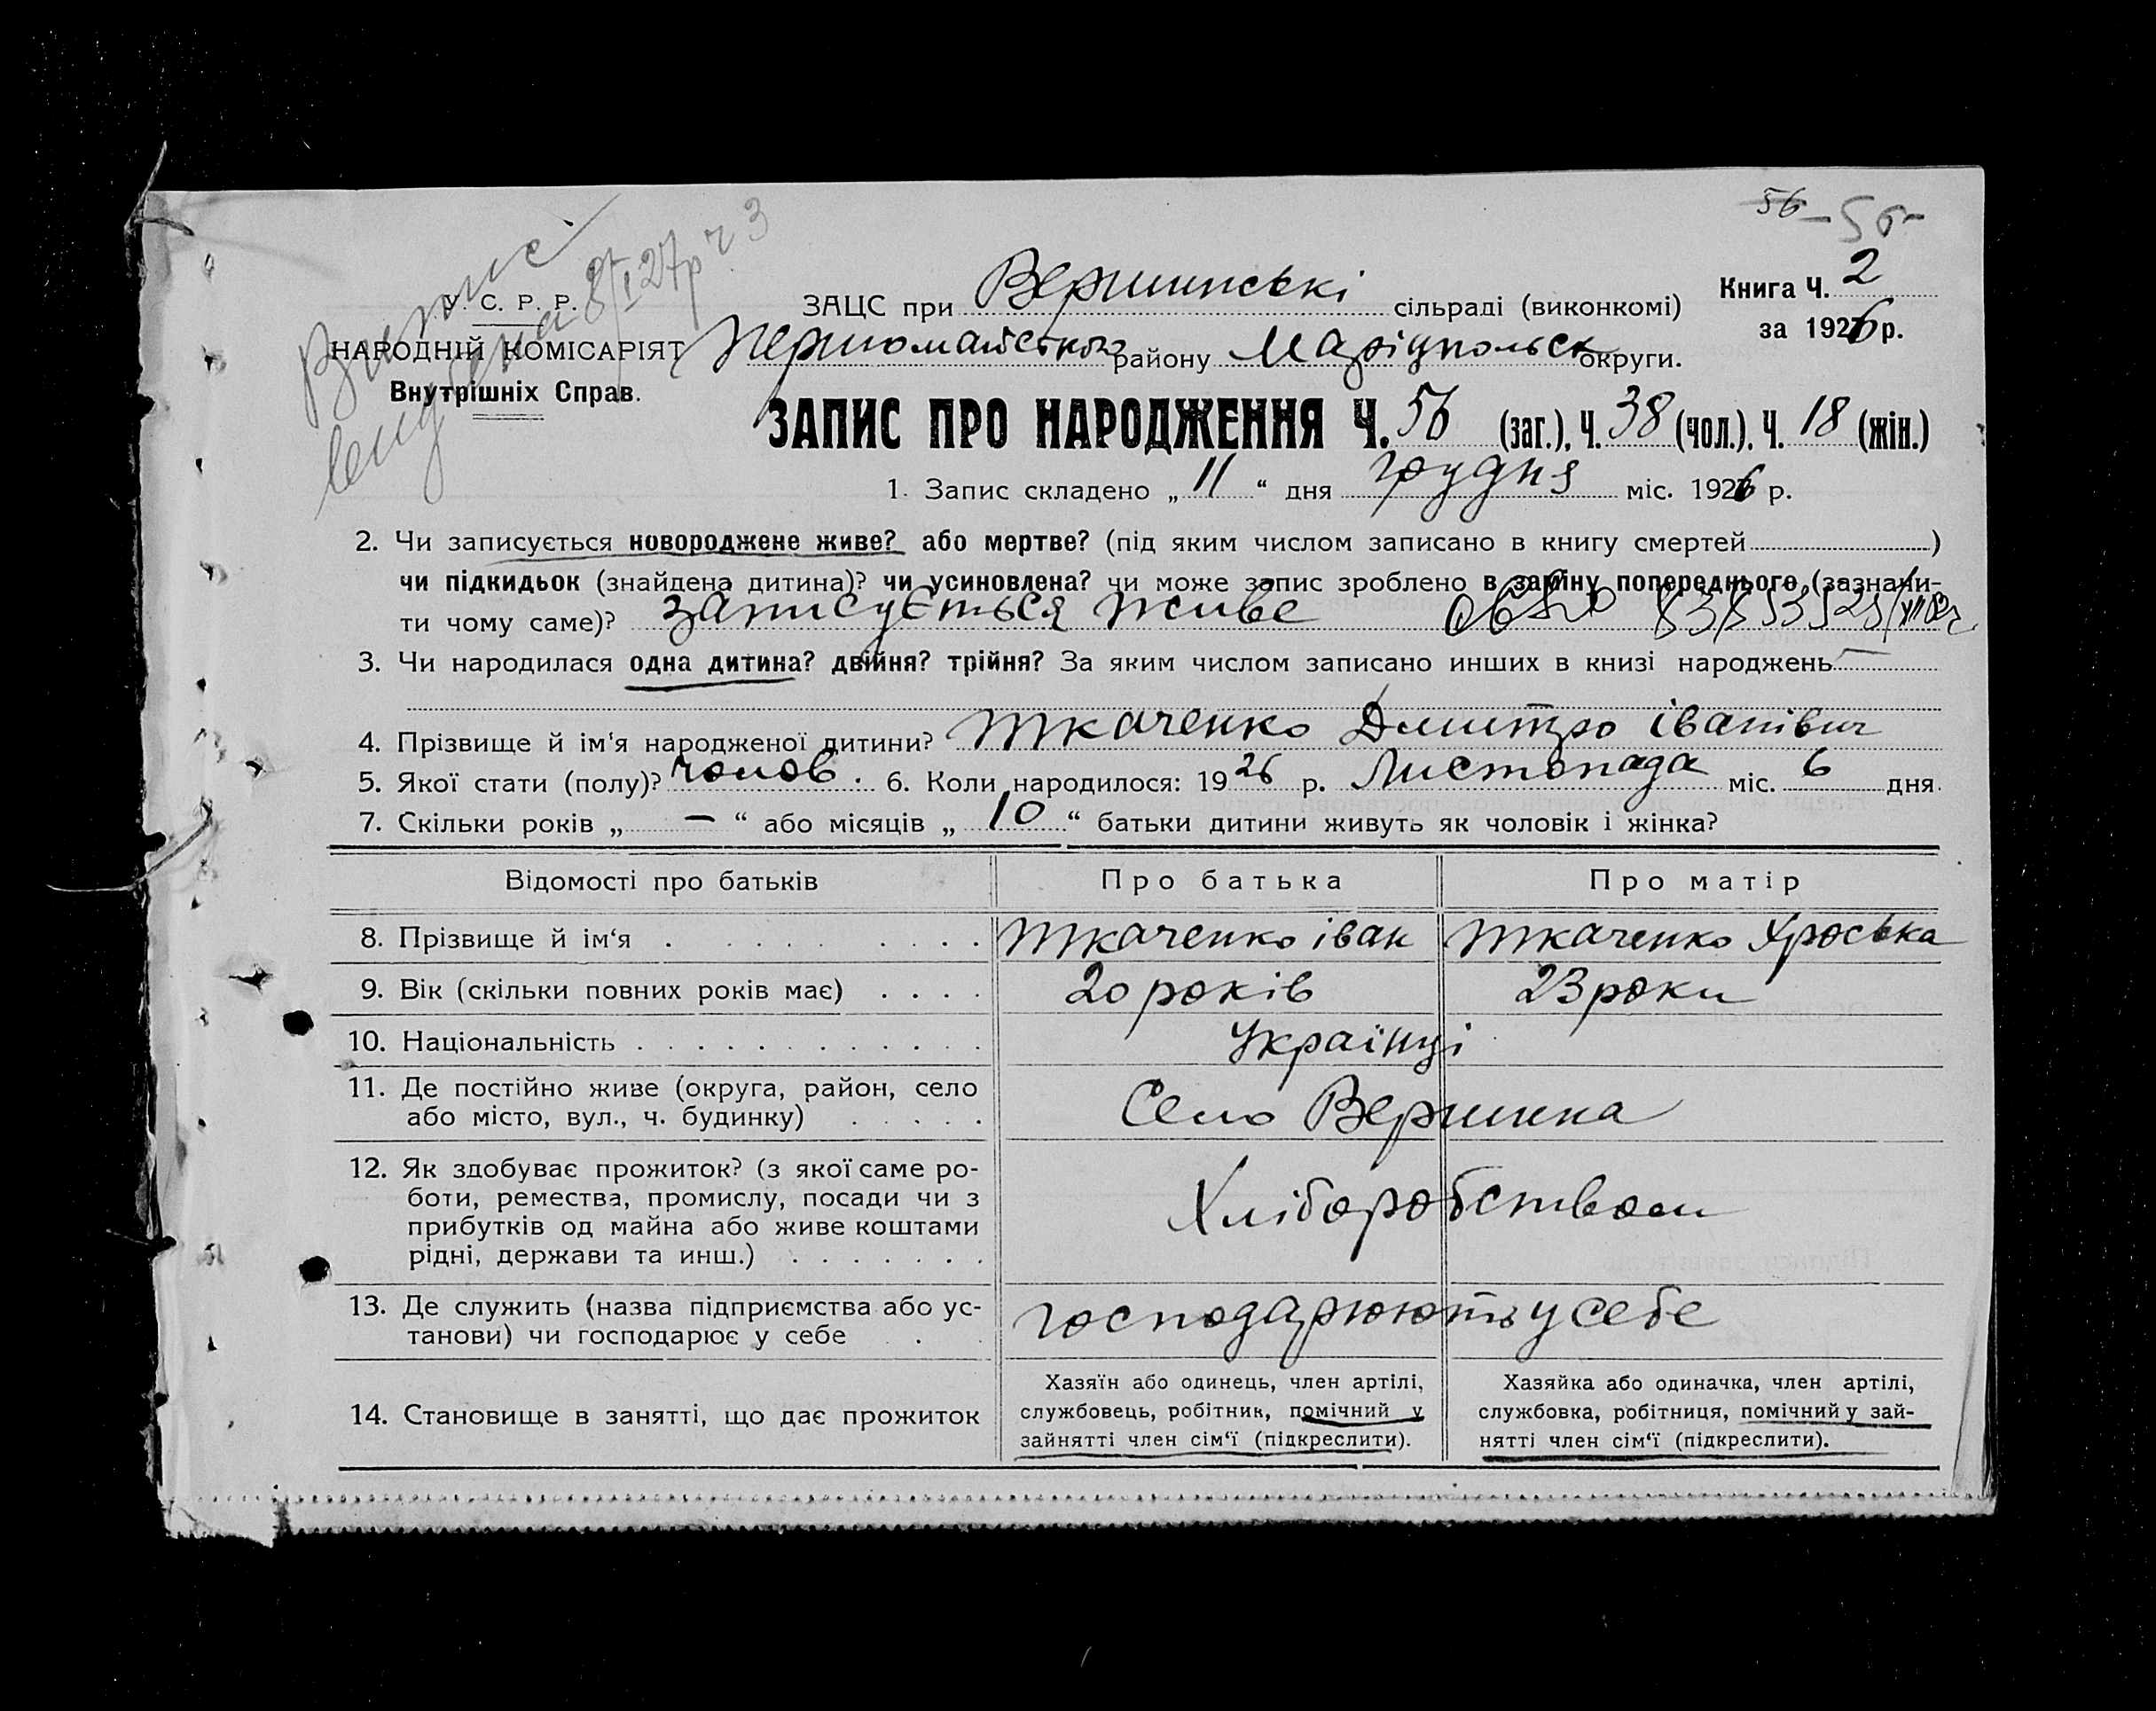 56 – 56
У. С. Р. Р.
НАРОДНІЙ КОМІСАРІЯТ
Внутрішніх Справ.
Випис
8/I 27р ч 3
ЗАЦС при Вершинські сільраді (виконкомі)
Першомайського району Маріупольськ округи.
Книга Ч. 2
за 1926 р.
ЗАПИС ПРО НАРОДЖЕННЯ Ч. 56 (заг.), Ч. 38 (чол.), Ч. 18 (жін.)
1. Запис складено „ 11 “ дня грудня міс. 1926 р.
2. Чи записується новороджене живе? або мертве? (під яким числом записано в книгу смертей )
чи підкидьок (знайдена дитина)? чи усиновлена? чи може запис зроблено в заміну попереднього (зазначи-
ти чому саме)? записується живе
3. Чи народилася одна дитина? двійня? трійня? За яким числом записано инших в книзі народжень –
4. Прізвище й ім'я народженої дитини? Ткаченко Дмитро іванівич
5. Якої стати (полу)? чолов. 6. Коли народилося: 1926 р. Листопада міс. 6 дня
7. Скільки років „ — “ або місяців „ 10 “ батьки дитини живуть як чоловік і жінка?
Відомості про батьків Про батька Про матір
8. Прізвище й ім‘я . . . . . . . . . Ткаченко іван Ткаченко Хроська
9. Вік (скільки повних років має) . . . . 20 років 23 роки
10. Національність . . . . . . . . . . . . Українці
11. Де постійно живе (округа, район, село
або місто, вул., ч. будинку) . . . . . Село Вершина
12. Як здобуває прожиток? (з якої саме ро-
боти, ремества, промислу, посади чи з
прибутків од майна або живе коштами
рідні, держави та инш.) . . . . . . . Хліборобством
13. Де служить (назва підприємства або ус-
танови) чи господарює у себе . господарюють у себе
14. Становище в занятті, що дає прожиток
Хазяїн або одинець, член артілі,
службовець, робітник, помічний у
зайнятті член сім‘ї (підкреслити).
Хазяйка або одиначка, член артілі,
службовка, робітниця, помічний у зай-
нятті член сім‘ї (підкреслити).